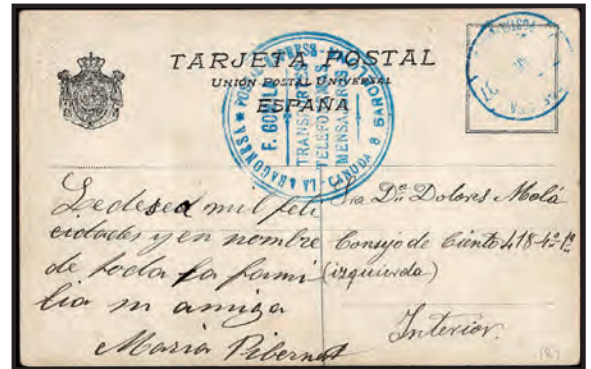 TARJETA POSTAL
UNIÓN POSTAL UNIVERSAL
ESPAÑA
POSTAL EXPRESS
LA ARAGONESA
F. GOMILA
TRANSPORTES
TELEFONEMAS
MENSAJEROS
CANUDA 8 BARCELONA
Le desea mil feli
cidades y en nombre
de toda la fami
lia su amiga
Maria Pibernat
Sra Dª Dolores Molá
Consejo de Ciento 418-4º-1ª
(izquierda)
Interior.
187